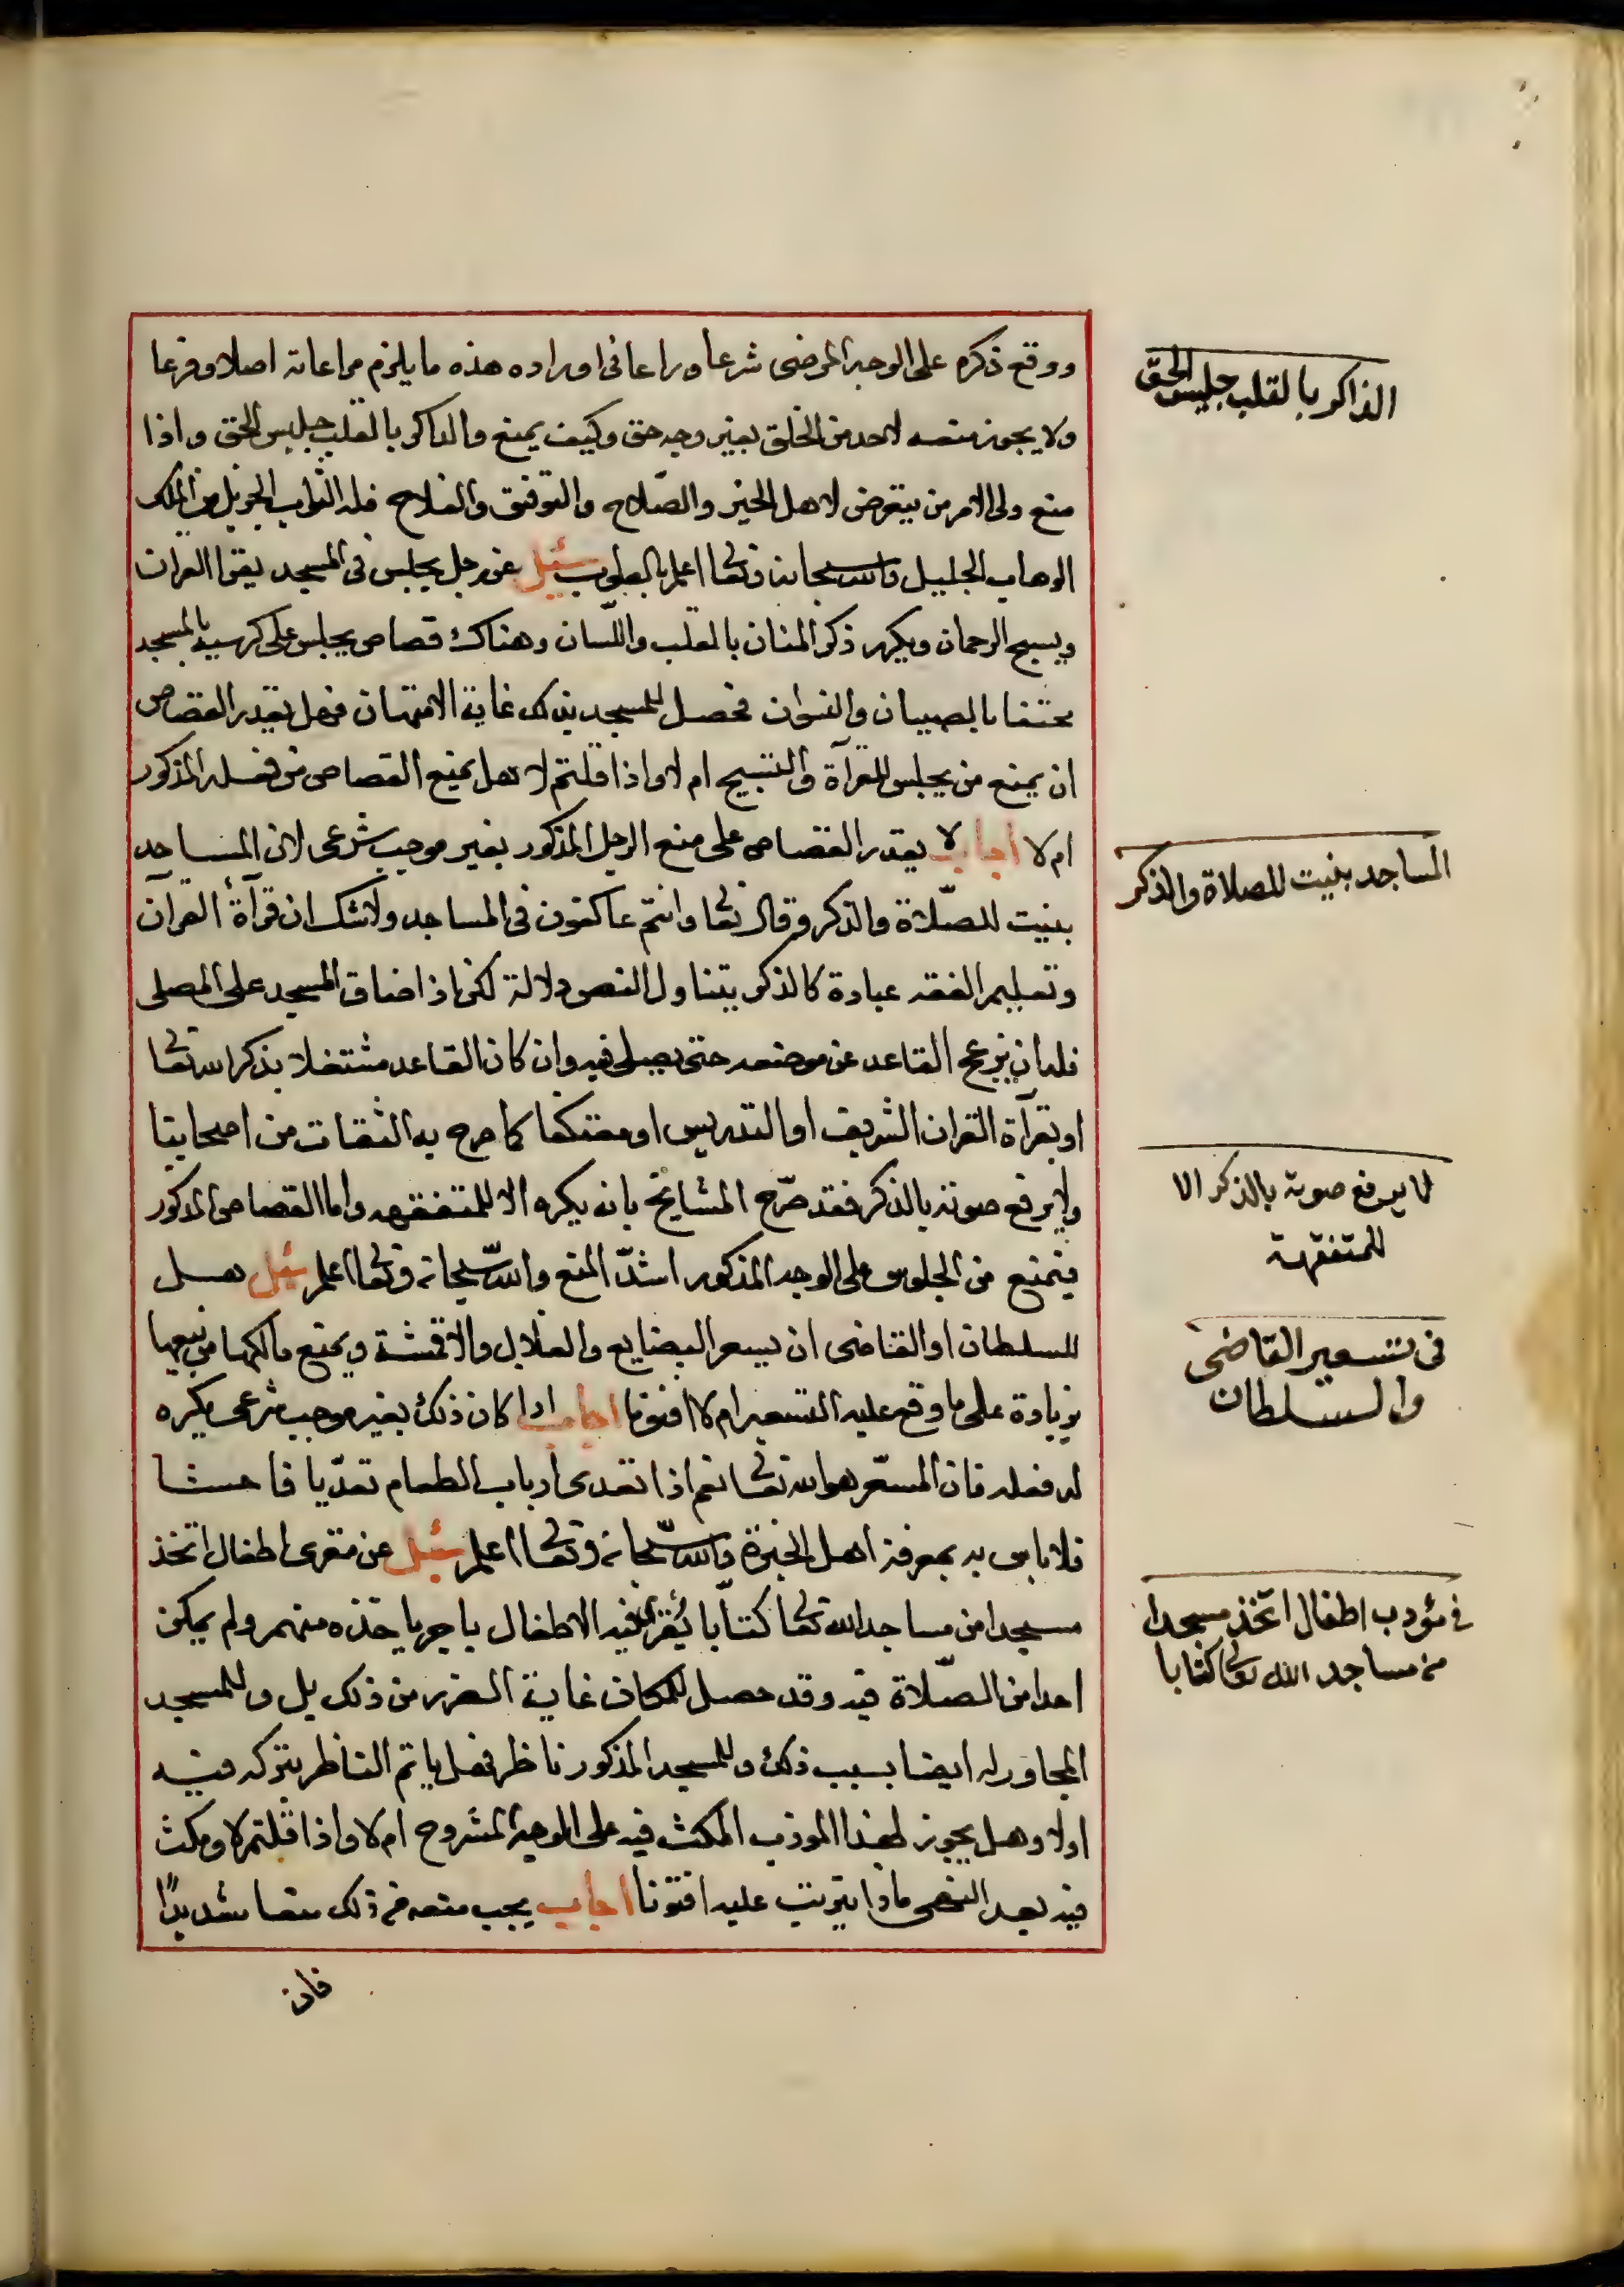 ووقع ذكره على الوجه المرضى شرعا وراعا فى اوراده هذه ما يلزم مراعاته اصلا وفرعا
ولا يجوز منعه لاحد من الخلق بغير وجه حق وكيف يمنع والذاكر بالقلب جليس الحق واذا
منع ولى الامر من يتعرض لاهل الخير والصّلاح والتوفيق والفلاح فله الثواب الجزيل من الملك
الوهاب الجليل والله سبحانه وتعا اعلم بالصواب سئيل عن رجل يجلس فى المسجد يقرا القران
ويسبح الرحمان ويكرر ذكر المنان بالقلب واللّسان وهناك قصاص يجلس على كرسيه بالمسجد
محتفا بالصبيان والنسوان فحصل للمسجد بذلك غاية الامتهان فهل يقدر القصاص
ان يمنع من يجلس للقرآة والتسبيح ام لا واذا قلتم لا هل يمنع القصاص من فعله المذكور
ام لا اجاب لا يقدر القصاص على منع الرجل المذكور بغير موجب شرعى لان المساجد
بنيت للصّلاة والذكر وقال تعا وانتم عاكفون فى المساجد ولا شك ان قرآة القرآن
وتعليم الفقه عبادة كالذكر يتناول النص دلالة لكن اذا ضاق المسجد على المصلى
فله ان يزعج القاعد عن موضعه حتى يصلى فيه وان كان القاعد مشتغلا بذكر الله تعا
او بقرآة القران الشريف او التدريس او معتكفا كما صرح به الثقات من اصحابنا
ولا يرفع صوته بالذكر فقد صرّح المشايخ بانه يكره الا للمتفقهه واما القصاص المذكور
فيمنع من الجلوس على الوجه المذكور اشدّ المنع والله سبحانه وتعا اعلم سئيل هل
للسلطان او القاضى ان يسعر البضايع والغلال والاقمشة ويمنع مالكها من بيعها
بزيادة على ما وقع عليه التسعير ام لا افتونا اجاب اذا كان ذلك بغير موجب شرعى يكره
له فعله فان المسعّر هو الله تعا نعم اذا تعدى ارباب الطعام تعدّيا فاحشا
فلا باس به بمعرفة اهل الخبرة والله سبحانه وتعا اعلم سئيل عن مقرى اطفال اتخذ
مسجدا من مساجد الله تعا كتّابا يُقرئ فيه الاطفال باجر ياخذه منهم ولم يمكن
احدا من الصّلاة فيه وقد حصل للمكان غاية الضرر من ذلك بل وللمسجد
المجاور له ايضا بسبب ذلك وللمسجد المذكور ناظر فهل ياثم الناظر بتركه فيه
اولا وهل يجوز لهذا الموذب المكث فيه على الوجه المشروح ام لا واذا قلتم لا ومكث
فيه بعد النهى ماذا يترتب عليه افتونا اجاب يجب منعه من ذلك منعا شديدًا
فان
الذاكر بالقلب جليس الحقّ
المساجد بنيت للصلاة والذكر
لا يرفع صوته بالذكر الا
للمتفقهة
فى تسعير القاضى
والسلطان
فى مؤدب اطفال اتخذ مسجدا
من مساجد الله تعا كتابا